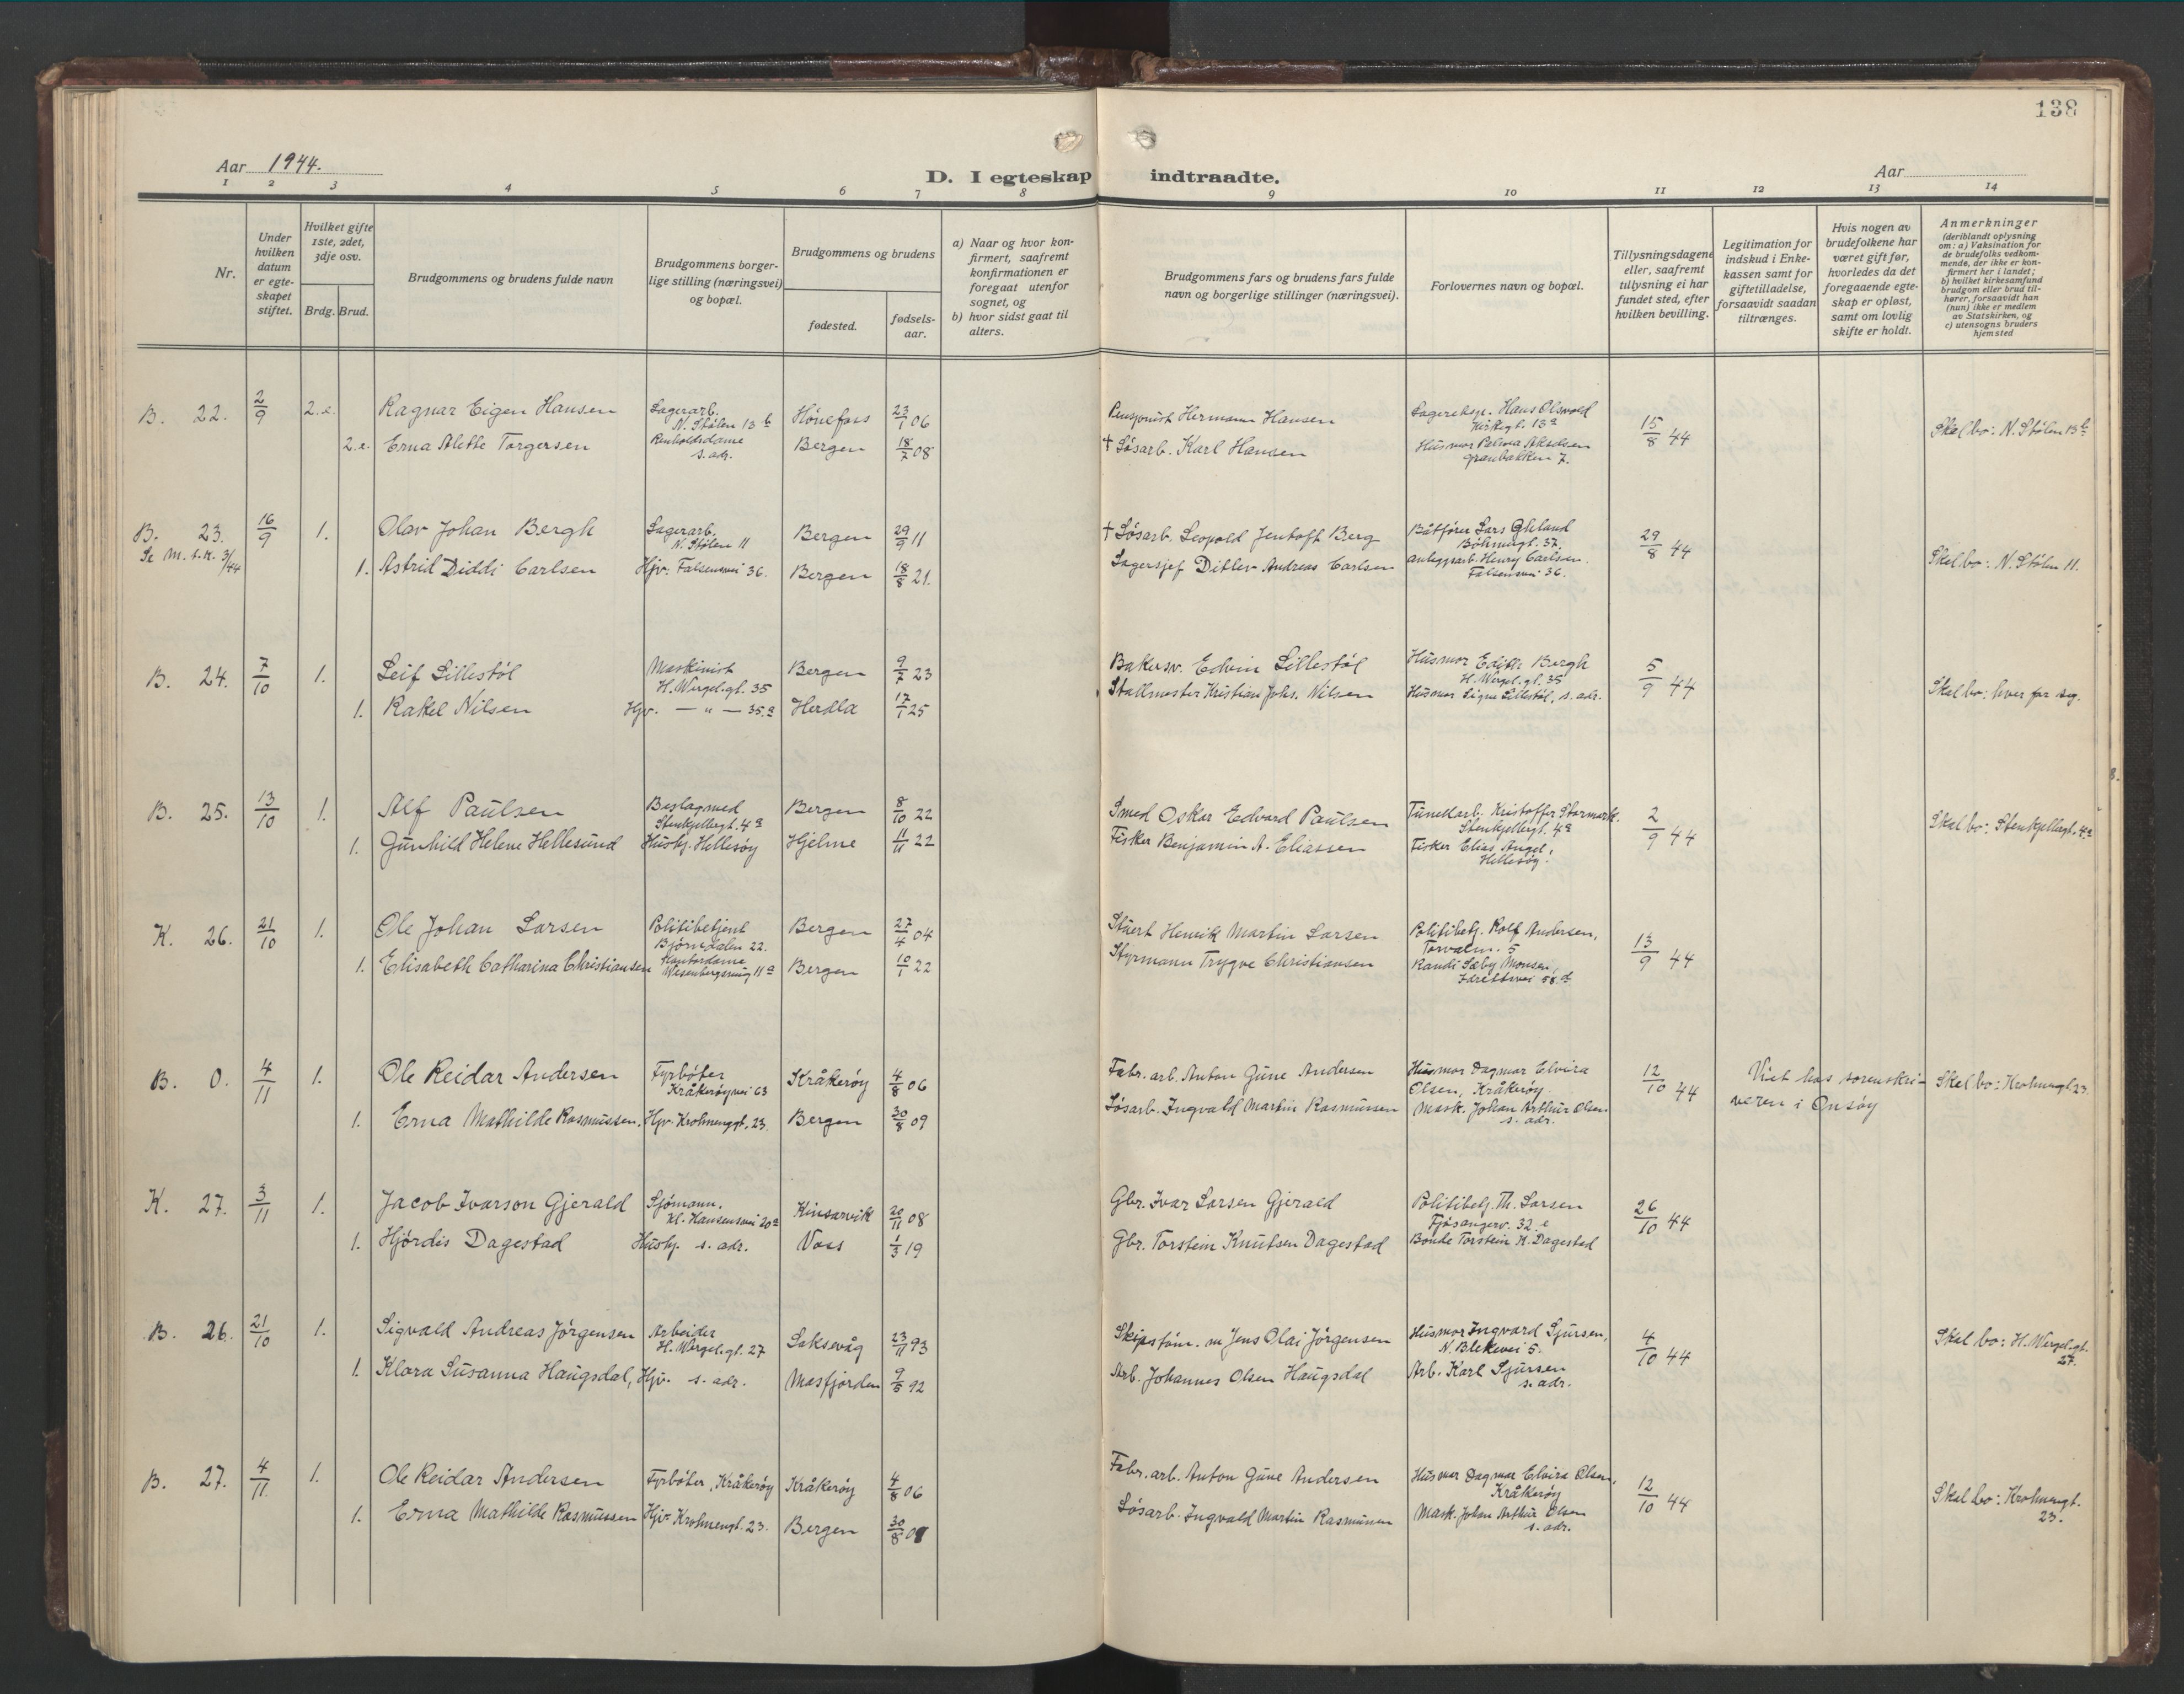 138
Aar 1944.
D. I egteskap indtraadte.
Aar
1 2 3 4 5 6 7 8 9 10 11 12 13 14
Nr.
Under hvilken datum er egteskapet stiftet.
Hvilket gifte 1ste, 2det, 3dje osv.
Brdg. Brud.
Brudgommens og brudens fulde navn
Brudgommens borgerlige stilling (næringsvei) og bopæl.
Brudgommens og brudens
fødested.
fødselsaar.
a) Naar og hvor konfirmert, saafremt konfirmationen er foregaat utenfor sognet, og
b) hvor sidst gaat til alters.
Brudgommens fars og brudens fars fulde navn og borgerlige stillinger (næringsvei).
Forlovernes navn og bopæl.
Tillysningsdagene eller, saafremt tillysning ei har fundet sted, efter hvilken bevilling.
Legitimation for indskud i Enkekassen samt for giftetilladelse, forsaavidt saadan tiltrænges.
Hvis nogen av brudefolkene har været gift før, hvorledes da det foregaaende egteskap er opløst, samt om lovlig skifte er holdt.
Anmerkninger
(deriblandt oplysning om: a) Vaksination for de brudefolks vedkommende, der ikke er konfirmert her i landet; b) hvilket kirkesamfund brudgom eller brud tilhører, forsaavidt han (hun) ikke er medlem av Statskirken, og c) utensogns bruders hjemsted
B. 22. 2/9 2.e. Ragnar Eigen Hansen Lagerarb. N. Stølen 13 b Hönefoss 23/1 06 Pensjonist Hermann Hansen Lagereksp. Hans Olsvold Kirkegt. 13a 15/8 44 Skal bo: N. Stølen 13b
2.e. Erna Alette Torgersen Renholdsdame s. adr. Bergen 18/7 08 † Løsarb. Karl Hansen Husmor Palma Akselsen Granbakken 7.
B. 23. 16/9 1. Olav Johan Bergh Lagerarb. N. Stølen 11 Bergen 29/9 11 † Løsarb. Leopold Jentoft Berg Båtfører Lars Öhland Böhmergt. 37. 29/8 44 Skal bo: N. Stølen 11.
Se M.s.k. 3/44
1. Astrid Diddi Carlsen Hjv. Falsensvei 36. Bergen 18/8 21. Lagersjef Ditlev Andreas Carlsen anleggsarb. Henry Carlsen. Falsensvei 36.
B. 24. 7/10 1. Leif Lillestöl Maskinist H. Wergel.gt. 35 Bergen 9/7 23 Bakersv. Edvin Lillestöl Husmor Edith Bergh H. Wergel.gt. 35 5/9 44 Skal bo: hver for seg.
1. Rakel Nilsen Hjv. — " — 35.a Herdla 17/1 25 Stallmester Kristian Johs. Nilsen Husmor Signe Lillestöl, s. adr.
B. 25. 13/10 1. Alf Paulsen Beslagsmed Stenkjellergt. 4a Bergen 8/10 22 Smed Oskar Edvard Paulsen Tunellarb. Kristoffer Stormark. Stenkjellergt. 4a 2/9 44 Skal bo: Stenkjellergt. 4a
1. Gunhild Helene Hellesund Hushj. Hellesøy Hjelme 11/11 22 Fisker Benjamin A. Eliassen Fisker Elias Angel, Hellesöy.
K. 26. 21/10 1. Ole Johan Larsen Politibetjent Björndalen 22. Bergen 27/4 04 Stuert Henrik Martin Larsen Politibetj. Rolf Andersen, Torvalm. 5 13/9 44
1. Elisabeth Catharina Christiansen Kontordame Wesenbergsmug 11a Bergen 10/1 22 Styrmann Trygve Christiansen Randi Sæby Monsen, Idrettsvei 58.d
B. 0. 4/11 1. Ole Reidar Andersen Fyrböter Kråkeröyvei 63 Kråkeröy 4/8 06 Fabr. arb. Anton Gune Andersen Husmor Dagmar Elvira Olsen, Kråkeröy. 12/10 44 Viet hos sorenskriveren i Onsöy Skal bo: Krohnengt. 23
1. Erna Mathilde Rasmussen. Hjv. Krohnenggt. 23. Bergen 30/8 09 Løsarb. Ingvald Martin Rasmussen Mask. Johan Arthur Olsen s. adr.
K. 27. 3/11 1. Jacob Ivarson Gjerald Sjömann. Kl. Hansensvei 20a Kinsarvik 20/11 08 Gbr. Ivar Larsen Gjerald Politibetj. Th. Larsen Fjösangerv. 32.e 26/10 44
1. Hjördis Dagestad Hushj. s. adr. Voss 1/3 19 Gbr. Torstein Knutsen Dagestad Bonde Torstein K. Dagestad
B. 26. 21/10 1. Sigvald Andreas Jörgensen Arbeider H. Wergel.gt. 27 Laksevåg 23/11 93 Skipstöm. m Jens Olai Jörgensen Husmor Ingvard Sjursen, N. Blekevei 5. 4/10 44 Skal bo: H. Wergel.gt. 27.
1. Klara Susanna Haugsdal, Hjv. s. adr. Masfjorden 9/5 92 Arb. Johannes Olsen Haugsdal Arb. Karl Sjursen s. adr.
B. 27. 4/11 1. Ole Reidar Andersen Fyrböter, Kråkeröy Kråkeröy 4/8 06 Fabr. arb. Anton Gune Andersen Husmor Dagmar Elvira Olsen, Kråkeröy 12/10 44 Skal bo: Krohnengt. 23.
1. Erna Mathilde Rasmussen Hjv. Krohnengt. 23. Bergen 30/8 09 Løsarb. Ingvald Martin Rasmussen Mask. Johan Arthur Olsen s. adr.